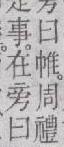 旁曰帷周禮
事在旁曰